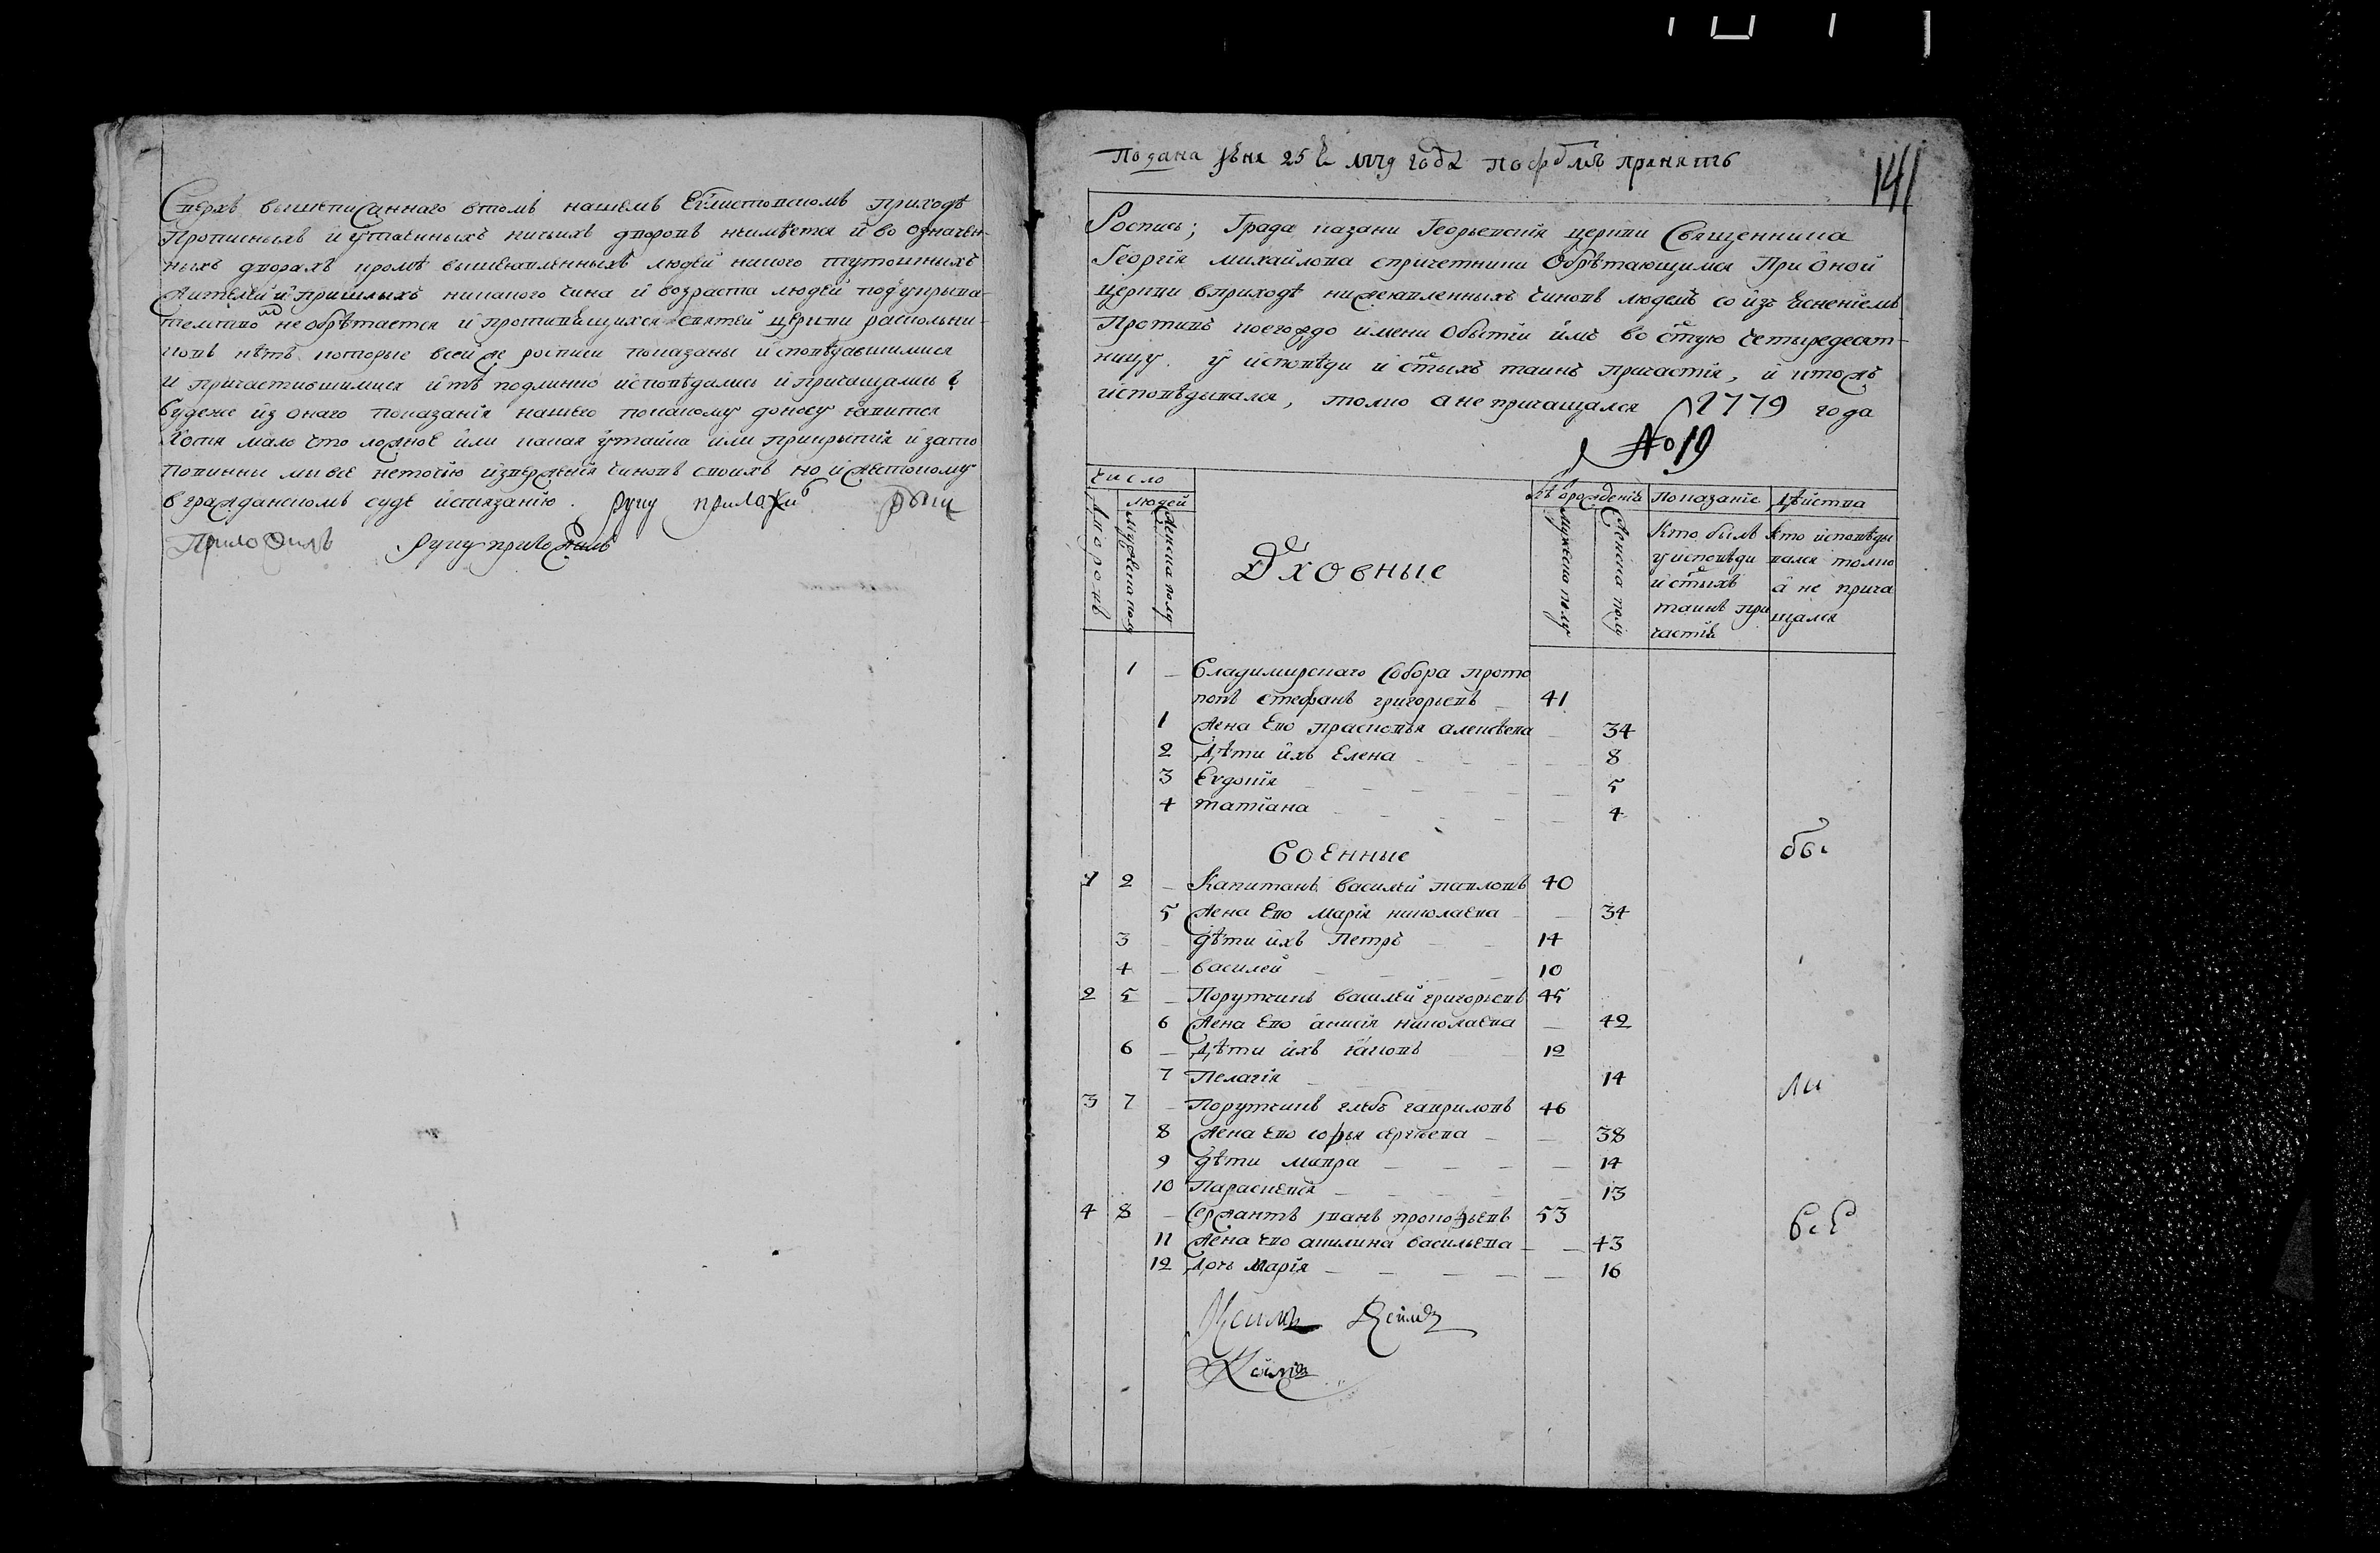 Сверхъ вышеписаннаго втомъ нашемъ Евлистовскомъ приходѣ
Прописныхъ и утаенныхъ ничьихъ дворовъ неимѣется и во означен-
ныхъ дворахъ кромѣ вышеявленныхъ людей никого тутошнихъ
Жителей и пришлыхъ никакого чина и возраста людей подукрыва-
телство необрѣтается и противящихся святей церкви расколни-
ковъ нѣтъ которые всей же росписи показаны исповѣдавшимися
и причастившимися и тѣ подлинно исповѣдались и причащались а
будеже из онаго показанія нашего покакому доносу явится
Хотя мало что ложное или какая утайка или прикрытія и зато
повинни мы все неточію изверженія чиновъ своихъ но и жестокому
в гражданскомъ судѣ истязанію. руку приложи руку
Приложилъ руку приложилъ
Подана июня 25 1779 года принять
141
Роспись; Града казани Георьевскія церкви Священника
Георгія михайлова спричетники Обрѣтающимся При оной
церкви вприходѣ нижеявленныхъ чиновъ людей со изъясненіемъ
Противъ коегождо имени Обытіи ихъ во стую четыредесят-
ницу. у исповѣди и стыхъ таинъ причастія, и ктожъ
исповѣдывался, толко а не причащался 1779 года
№ 19
число
людей
Дворовъ
Мужеска полу
Женска полу
Дховные
Лѣ ѿ рожденія
Мужеска полу
Женска полу
Показаніе дѣйства
Кто былъ у исповѣди и стыхъ таинъ причастія
Кто исповѣдывался толко а не причащался
1 – Владимирскаго Собора прото
попъ стефанъ григорьевъ – 41
1 Жена Ево прасковья алексѣева – 34
2 Дѣти ихъ Елена – 8
3 Евдокія – 5
4 татіана – 4
Военные
обе
1 2 – Капитанъ василей павловъ 40
5 Жена Ево Марія николаева – 34
3 – дѣти ихъ Петръ – 14
4 – василей – 10
2 5 – Порутчикъ василей григорьевъ 45
6 Жена Ево анисія николаева – 42
6 – Дѣти ихъ яковъ – 12
7 Пелагія – 14
ли
3 7 – Порутчикъ глебъ гавриловъ 46
8 Жена Ево софья сергѣева – 38
9 дѣти мавра – 14
10 Параскевія – 13
4 8 – Сержантъ іванъ прокофьевъ 53
все
11 Жена Ево акилина васильева – 43
12 Дочь Марія – 16